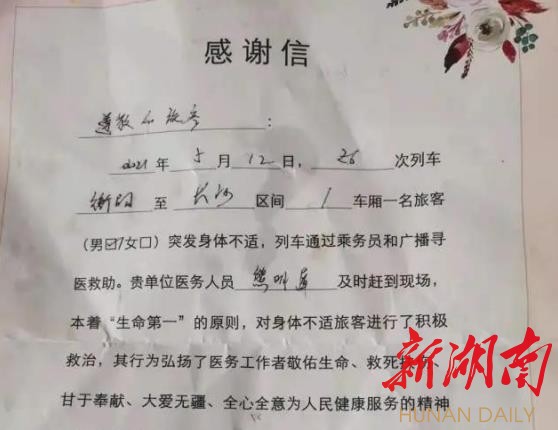 感谢信
尊敬的旅客：
2021年5月12日，Z6次列车
衡阳至长沙区间1车厢一名旅客
（男☑女□）突发身体不适，列车通过乘务员和广播寻
医救助。贵单位医务人员熊叶莲及时赶到现场，
本着“生命第一”的原则，对身体不适旅客进行了积极
救治，其行为弘扬了医务工作者敬佑生命、救死扶伤、
甘于奉献、大爱无疆、全心全意为人民健康服务的精神
新湖南
HUNAN DAILY